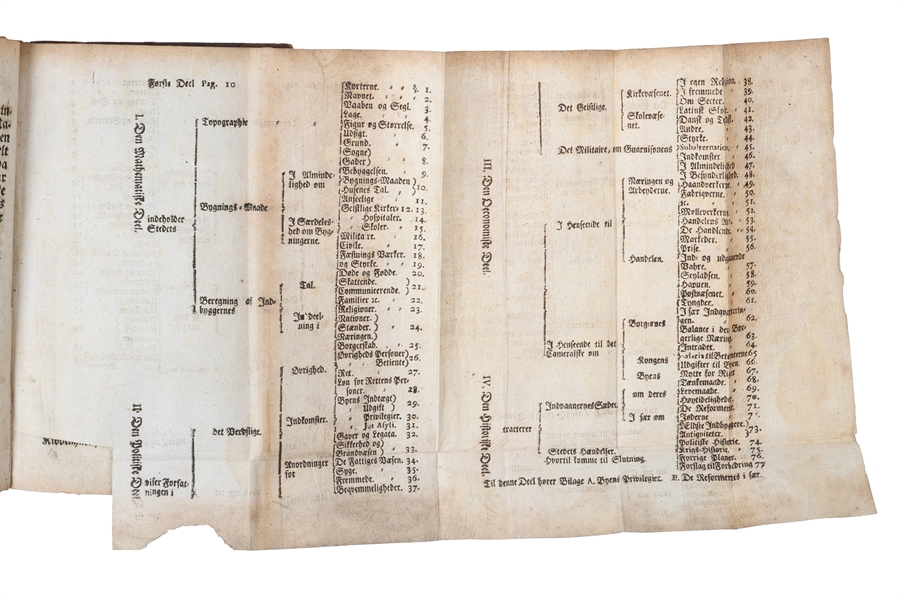 Første Deel Pag. 10
I. Den Mathematiske Deel.
indeholder
Stedets
Topographie
Bygnings-Maade
Beregning af Ind-
byggernes
I Alminde-
lighed om
I Særdeles-
hed om Byg-
ningerne.
Tal.
Inddeel-
ning i
Korterne. §. 1.
Navnet. 2.
Vaaben og Segl. 3.
Lage. 4.
Figur og Størrelse. 5.
Udsigt. 6.
Grund. 7.
Sogne)
Gader) 8.
Bebyggelsen. 9.
Bygnings-Maaden)
Husenes Tal. )10.
Anseelige 11.
Geistlige Kirker 12. 13.
Hospitaler. 14.
Skoler. 15.
Militaire. 16.
Civile. 17.
Fæstnings Værker. 18.
og Styrke. 19.
Døde og Fødde. 20.
Skattende. )
Communicerende. )21.
Familier ꝛc. 22.
Religioner. 23.
Nationer.)
Stænder.) 24.
Næringen.)
Borgerskab. 25.
II. Den Politiske Deel.
viser Forfat-
ningen i
det Verdslige.
Øvrighed.
Indkomster.
Anordninger
for
Øvrigheds Personer)
Betiente) 26.
Ret. 27.
Løn for Rettens Per-
soner. 28.
Byens Indtægt)
Udgift ) 29.
Privilegier. 30.
Jus Asyli. 31.
Gaver og Legata. 32.
Sikkerhed og)
Brandvæsen) 33.
De Fattiges Væsen. 34.
Syge. 35.
Fremmede. 36.
Beqvemmeligheder. 37.
Det Geistlige.
Kirkevæsenet.
Skolevæse-
net.
I egen Religion. 38.
I fremmede 39.
Om Secter. 40.
Latinsk Skol. 41.
Dansk og Tydsk. 42.
Andre. 43.
Det Militaire, om Guarnisonens
Styrke. 44.
Subalternation. 45.
Indkomster. 46.
III. Den Oeconomiske Deel.
I Henseende til
Næringen og
Arbeyderne.
Handelen.
I Almindelighed 47.
I Besønderlighed. 48.
Haandverkerne. 49.
Fabriqverne. 50.
ꝛc. 51.
Molleverkerne. 52.
Handelens Art. 53.
De Handlende. 54.
Markeder. 55.
Prise. 56.
Ind- og udgaaende
Vahre. 57.
Seyladsen. 58.
Havnen. 59.
Postvæsenet. 60.
Tyngder. 61.
I Henseende til det
Cameralske om
Borgernes
Kongens
Byens
I sær Indqvarterin-
gen. 62.
Balance i den Bor-
gerlige Næring 63.
Intrader. 64.
Salaria til Betienterne 65
Udgifter til Byen. 66.
Nytte for Riget 67.
IV. Den Historiske Deel.
tracterer
Indvaanernes Sæder.
om deres
I sær om
Tænkemaade. 68.
Levemaade. 69.
Høytidelighede. 70.
De Reformeerte. 71.
Jøderne
Stedets Hændelser.
Hvortil komme til Slutning.
Ældste Indbyggere.
Antiqviteter. 73.
Politiske Historie. 74.
Krigs-Historie. 75.
Fyrrige Planer. 76.
Forslag til Forbedring 77
Til denne Deel hører Bilage A. Byens Privilegier. B. De Reformertes i sær.